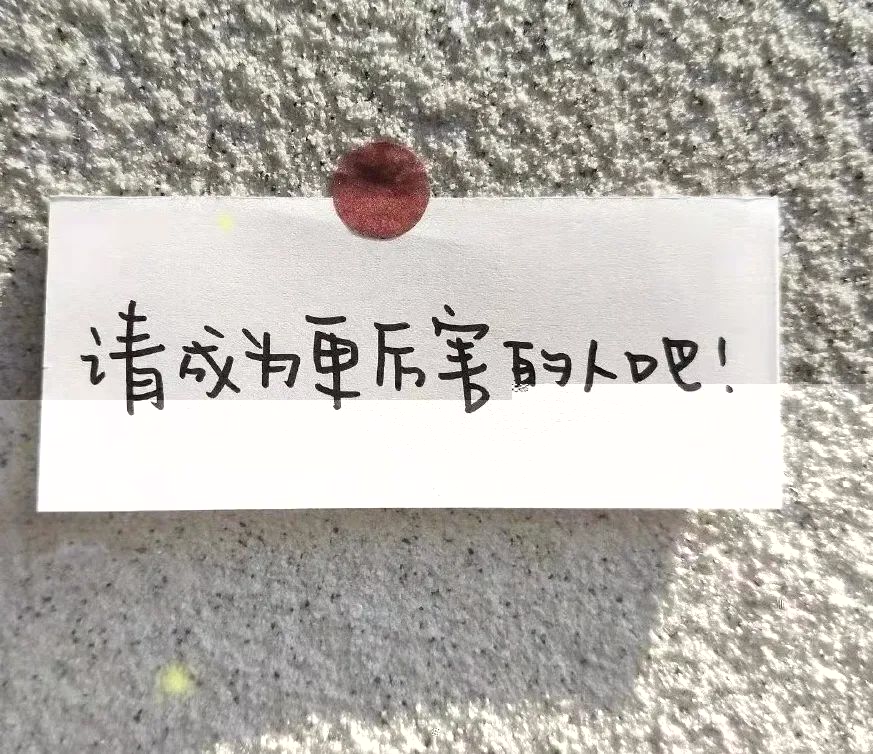 请成为更厉害的人吧!